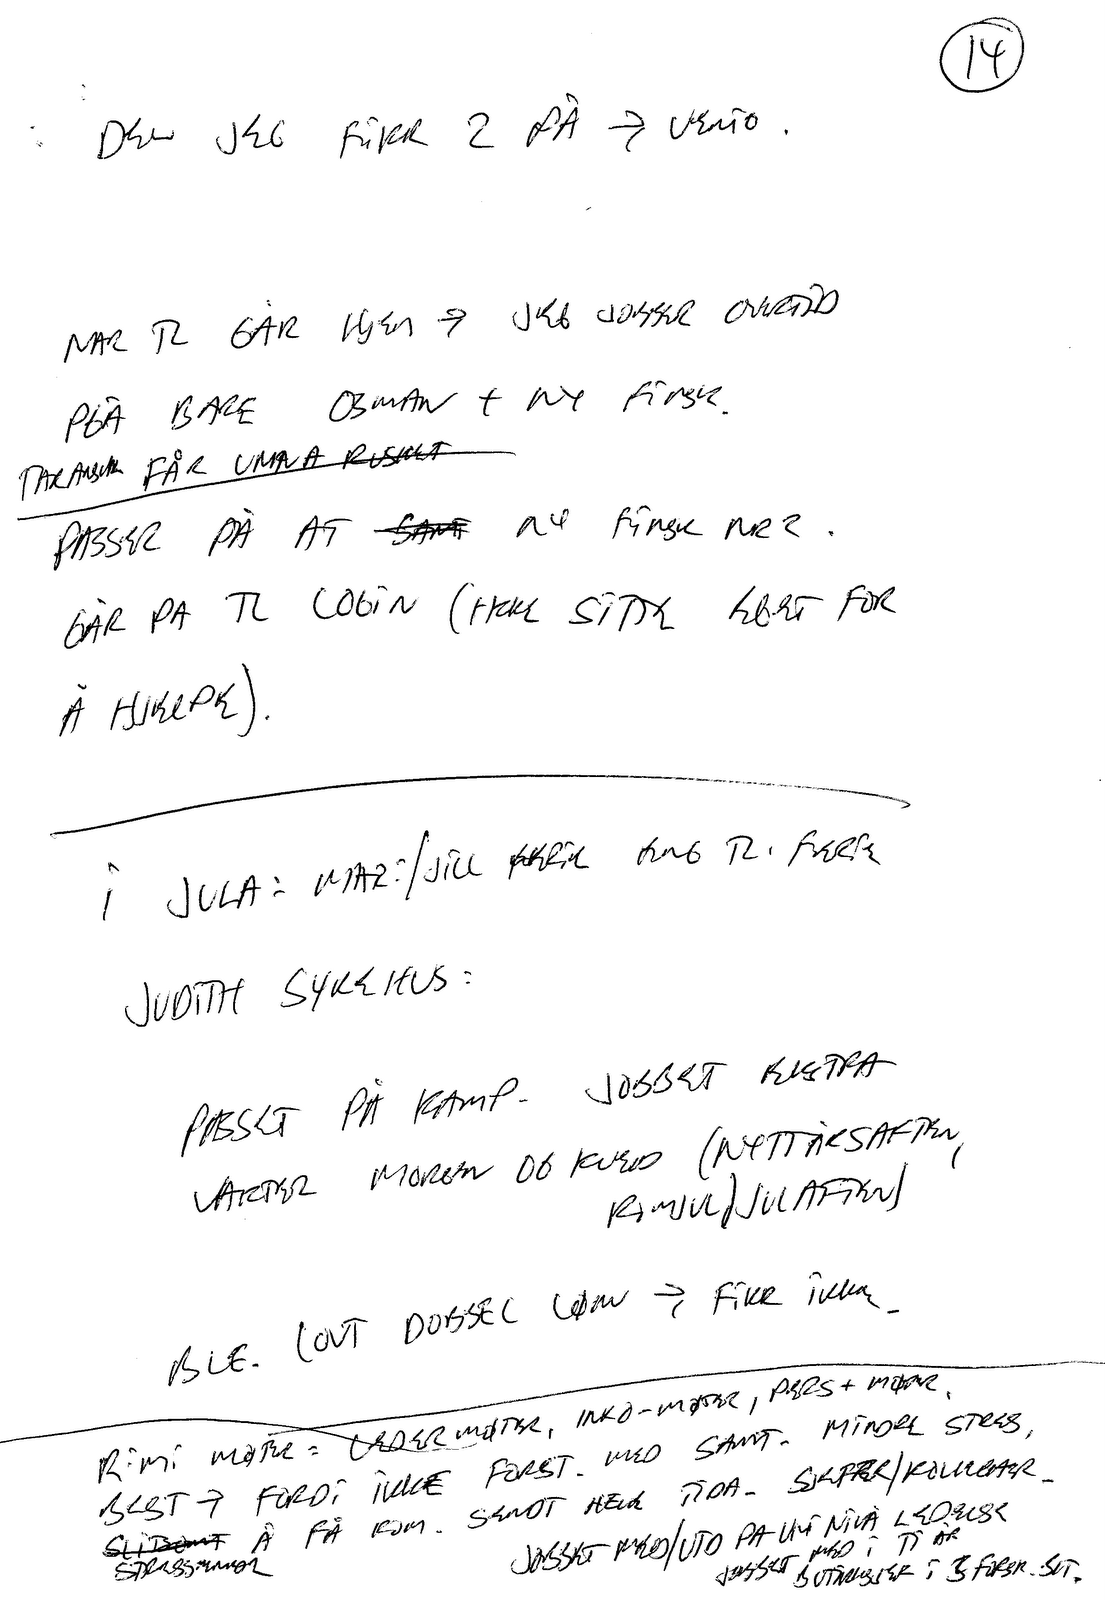 14
DEN JEG FIKK 2 PÅ → VENTO.
NÅR TL GÅR HJEM → JEG JOBBER OVERTID
PGA BARE OSMAN + NY FINSK.
FÅR RUSKET
PASSER PÅ AT SAMT NY FINSK NR 2.
GÅR PÅ TL LOGIN (IKKE SITTE FOR
Å HJELPE).
I JULA: MAZ:/JILL TL. FERIE
JUDITH SYKEHUS:
PASSET PÅ KAMP. JOBBET EKSTRA
VAKTER MORGEN OG KVELD (NYTTÅRSAFTEN,
ROMJUL/JULAFTEN)
BLE LOVT DOBBEL LØNN → FIKK IKKE.
RIMI MØTER = LEDERMØTER, INFO-MØTER, PERS + MØTER.
BEST → FORDI IKKE FORST. MED SAMT. MINDRE STRES,
Å FÅ KOM. SENDT HELE TIDA. SJEFER/KOLLEGAER.
JOBBET MED/UTD PÅ NIVÅ LEDELSE
JOBBET MED I TI ÅR
BUTIKKER I 3 FORSK. BUT.